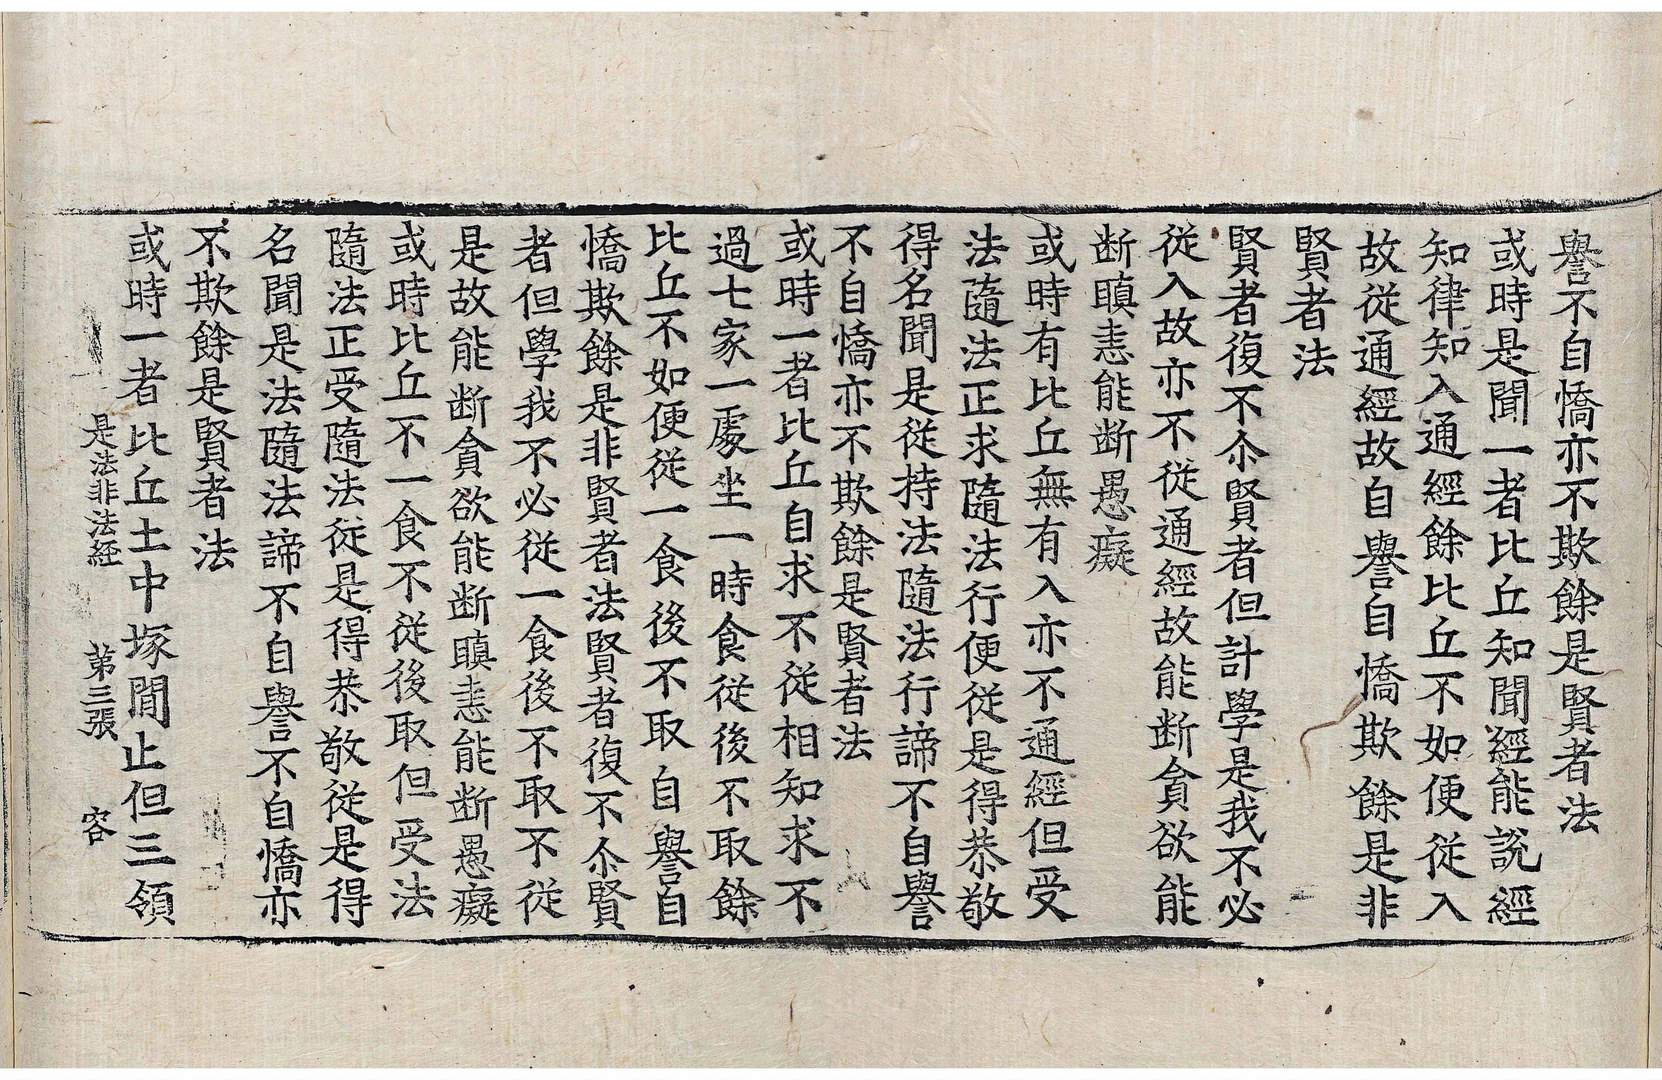 譽不自憍亦不欺餘是賢者法
或時是聞一者比丘知聞經能說經
知律知入通經餘比丘不如便從入
故從通經故自譽自憍欺餘是非
賢者法
賢者復不尒賢者但計學是我不必
從入故亦不從通經故能断貪欲能
断瞋恚能断愚癡
或時有比丘無有入亦不通經但受
法隨法正求隨法行便從是得恭敬
得名聞是從持法隨法行諦不自譽
不自憍亦不欺餘是賢者法
或時一者比丘自求不從相知求不
過七家一處坐一時食從後不取餘
比丘不如便從一食後不取自譽自
憍欺餘是非賢者法賢者復不尒賢
者但學我不必從一食後不取不從
是故能断貪欲能断瞋恚能断愚癡
或時比丘不一食不從後取但受法
隨法正受隨法從是得恭敬從是得
名聞是法隨法諦不自譽不自憍亦
不欺餘是賢者法
或時一者比丘土中塚間止但三領
是法非法經 第三張 容